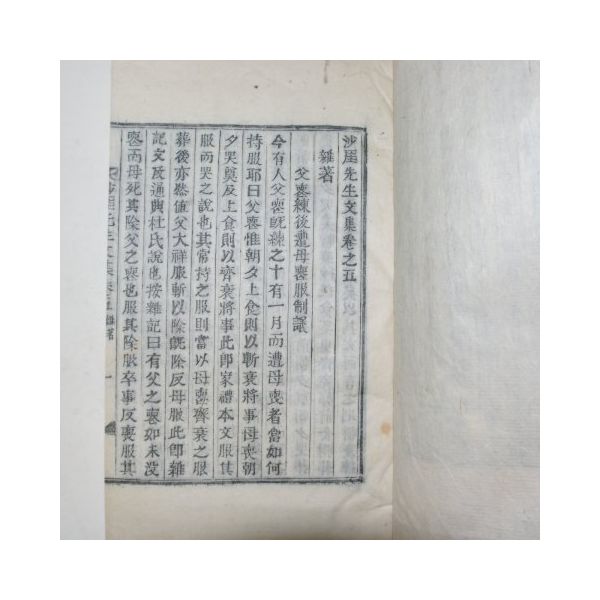 沙厓先生文集卷之五
雜著
父喪練後遭母喪服制議
今有人父喪旣練之十有一月而遭母喪者當如何
持服耶曰父喪惟朝夕上食則以斬衰將事母喪朝
夕哭奠及上食則以齊衰將事此卽家禮本文服其
服而哭之說也其常持之服則當以母喪齊衰之服
葬後亦然値父大祥服斬以除旣除反母服此卽雜
記文及通典杜氏說也按雜記曰有父之喪如未沒
喪而母死其除父之喪也服其除服卒事反喪服其
沙厓先生文集卷五 雜著 一